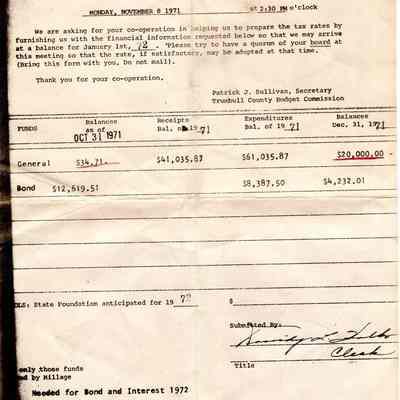 MONDAY, NOVEMBER 8 1971 at 2:30 PM o'clock
We are asking for your co-operation in helping us to prepare the tax rates by
furnishing us with the financial information requested below so that we may arrive
at a balance for January 1st, 72 . Please try to have a quorum of your board at
this meeting so that the rate, if satisfactory, may be adopted at that time.
(Bring this form with you. Do not mail).
Thank you for your co-operation.
Patrick J. Sullivan, Secretary
Trumbull County Budget Commission
FUNDS
Balances
as of
OCT 31 1971
Receipts
Bal. of 1971
Expenditures
Bal. of 1971
Balances
Dec. 31, 1971
General $34.71. $41,035.87 $61,035.87 $20,000.00 -
Bond $12,619.51 $8,387.50 $4,232.01
OLS: State Foundation anticipated for 1972 $
Submitted By:
Clerk
Title
only those funds
ed by Millage
Needed for Bond and Interest 1972